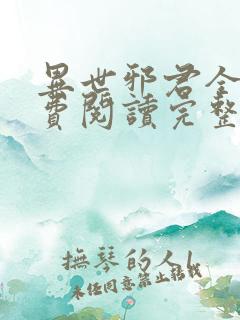 異世邪君全
費閱讀完整
撫琴的人l
未经同意禁止转载